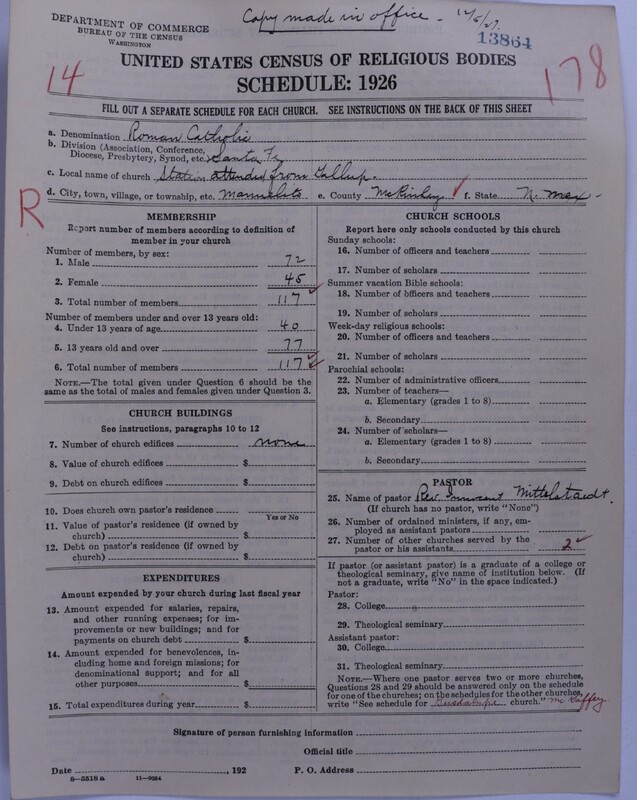 Copy made in office - 12/6/27.
DEPARTMENT OF COMMERCE
BUREAU OF THE CENSUS
WASHINGTON
13864
14
178
UNITED STATES CENSUS OF RELIGIOUS BODIES
SCHEDULE: 1926
FILL OUT A SEPARATE SCHEDULE FOR EACH CHURCH. SEE INSTRUCTIONS ON THE BACK OF THIS SHEET
a. Denomination Roman Catholic
b. Division (Association, Conference, Diocese, Presbytery, Synod, etc.) Santa Fe
c. Local name of church Station attended from Gallup.
d. City, town, village, or township, etc. Manuelito e. County McKinley f. State N. Mex
R
MEMBERSHIP
Report number of members according to definition of member in your church
Number of members, by sex:
1. Male 72
2. Female 45
3. Total number of members 117
Number of members under and over 13 years old:
4. Under 13 years of age 40
5. 13 years old and over 77
6. Total number of members 117
NOTE.—The total given under Question 6 should be the same as the total of males and females given under Question 3.
CHURCH BUILDINGS
See instructions, paragraphs 10 to 12
7. Number of church edifices none
8. Value of church edifices $
9. Debt on church edifices $
10. Does church own pastor's residence
Yes or No
11. Value of pastor's residence (if owned by church) $
12. Debt on pastor's residence (if owned by church) $
EXPENDITURES
Amount expended by your church during last fiscal year
13. Amount expended for salaries, repairs, and other running expenses; for improvements or new buildings; and for payments on church debt $
14. Amount expended for benevolences, including home and foreign missions; for denominational support; and for all other purposes $
15. Total expenditures during year $
CHURCH SCHOOLS
Report here only schools conducted by this church
Sunday schools:
16. Number of officers and teachers
17. Number of scholars
Summer vacation Bible schools:
18. Number of officers and teachers
19. Number of scholars
Week-day religious schools:
20. Number of officers and teachers
21. Number of scholars
Parochial schools:
22. Number of administrative officers
23. Number of teachers—
a. Elementary (grades 1 to 8)
b. Secondary
24. Number of scholars—
a. Elementary (grades 1 to 8)
b. Secondary
PASTOR
25. Name of pastor Rev. Innocent Mittelstaedt
(If church has no pastor, write "None")
26. Number of ordained ministers, if any, employed as assistant pastors
27. Number of other churches served by the pastor or his assistants 2
If pastor (or assistant pastor) is a graduate of a college or theological seminary, give name of institution below. (If not a graduate, write "No" in the space indicated.)
Pastor:
28. College
29. Theological seminary
Assistant pastor:
30. College
31. Theological seminary
NOTE.—Where one pastor serves two or more churches, Questions 28 and 29 should be answered only on the schedule for one of the churches; on the schedules for the other churches, write "See schedule for Guadalupe church." McGaffey
Signature of person furnishing information
Official title
Date , 192 P. O. Address
8—5518a 11—9084